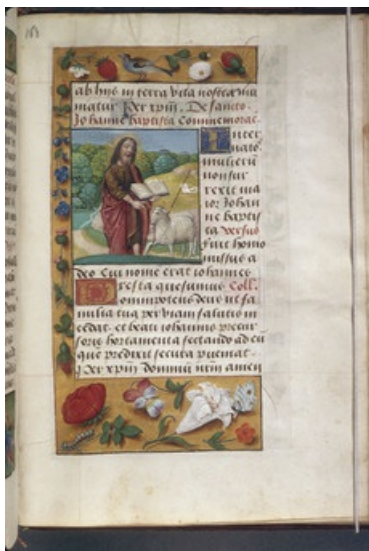 ab hijs in terra vita nostra mu
niatur Per xpm. De sancto
Johanne baptista Commemorac.
Inter
natos
mulierū
non sur
rexit ma
ior Johan
ne baptis
ta versus
fuit homo
missus a
deo Cui nomē erat iohannes
Presta quesumus Coll.
omnipotens deus ut fa
milia tua per viam salutis in
cedat et beati iohannis precur
soris hortamenta sectando ad eū
que predixit secura pueniat
Per xpm dominū nrm amen